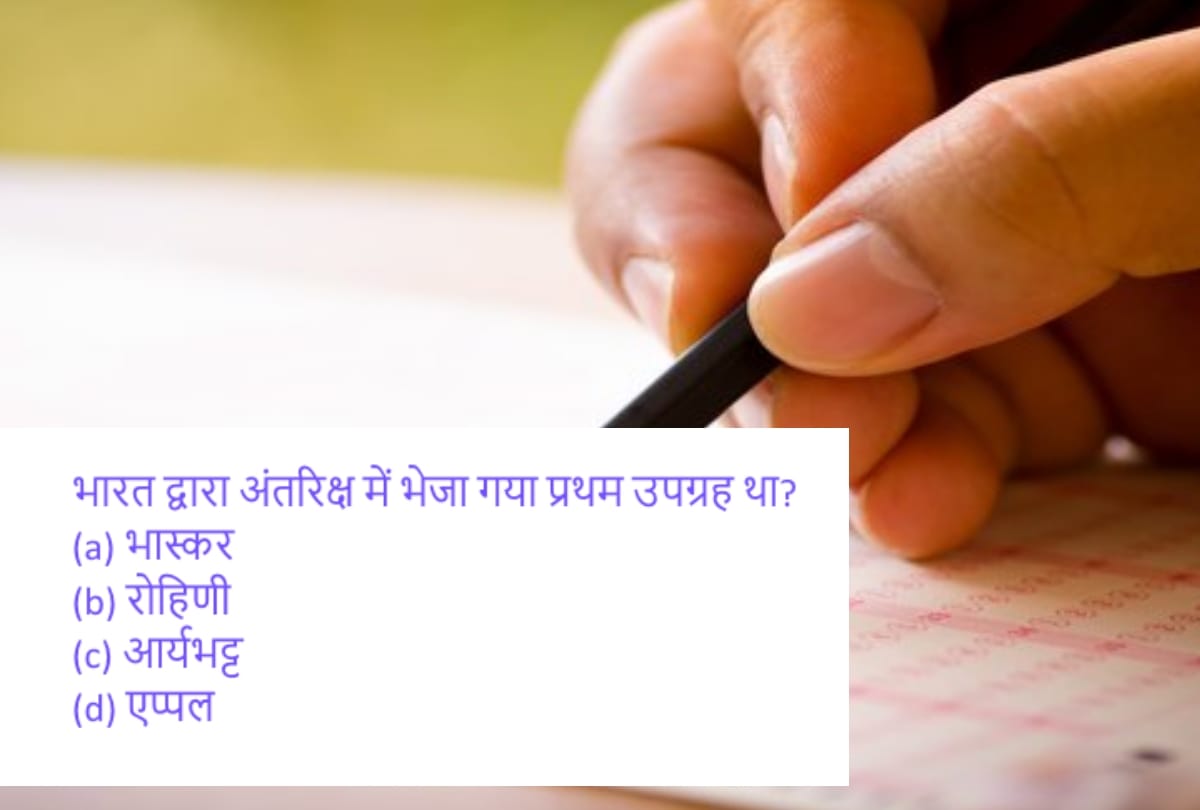 भारत द्वारा अंतरिक्ष में भेजा गया प्रथम उपग्रह था?
(a) भास्कर
(b) रोहिणी
(c) आर्यभट्ट
(d) एप्पल